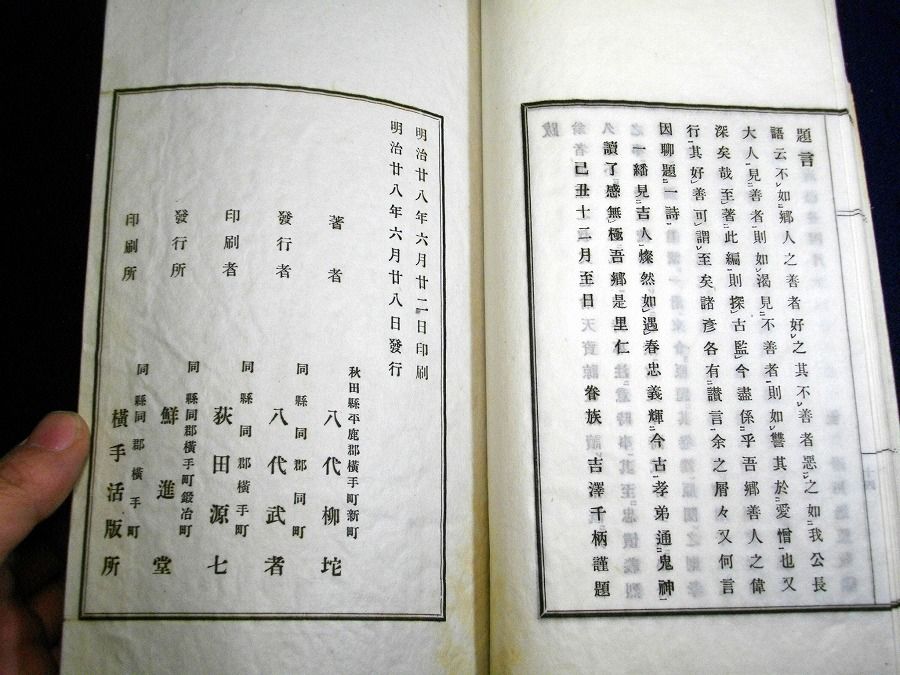 題言
語云不如鄉人之善者好之其不善者惡之如我公長
大人見善者則如渴見不善者則如讐其於愛憎也又
深矣哉至著此編則探古監今盡係乎吾鄉善人之偉
行其好善可謂至矣諸彥各有讃言余之屑々又何言
因聊題一詩
一繙見吉人燦然如遇春忠義輝今古孝弟通鬼神
讀了感無極吾鄉是里仁
己丑十二月至日 眷族 吉澤千柄謹題
明治廿八年六月廿二日印刷
明治廿八年六月廿八日發行
秋田縣平鹿郡橫手町新町
著者 八代柳坨
同縣同郡同町
發行者 八代武者
同縣同郡橫手町
印刷者 荻田源七
同縣同郡橫手町鍛冶町
發行所 鮮進堂
同縣同郡橫手町
印刷所 橫手活版所